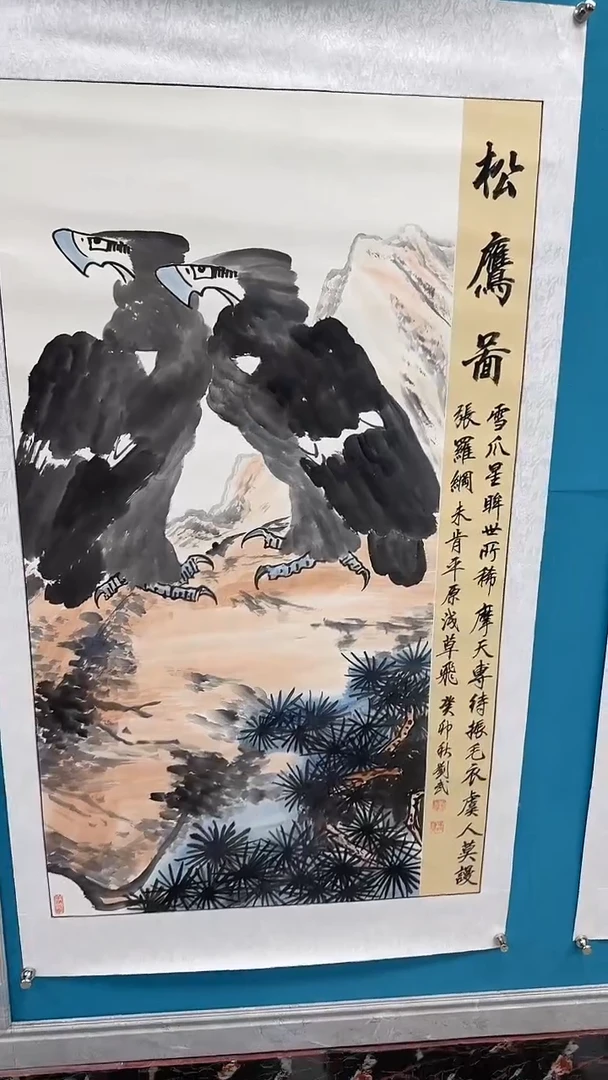 松鷹啚
雪爪星眸世所稀摩天專待振毛衣虞人莫謾
張羅網未肯平原淺草飛
癸卯秋劉武